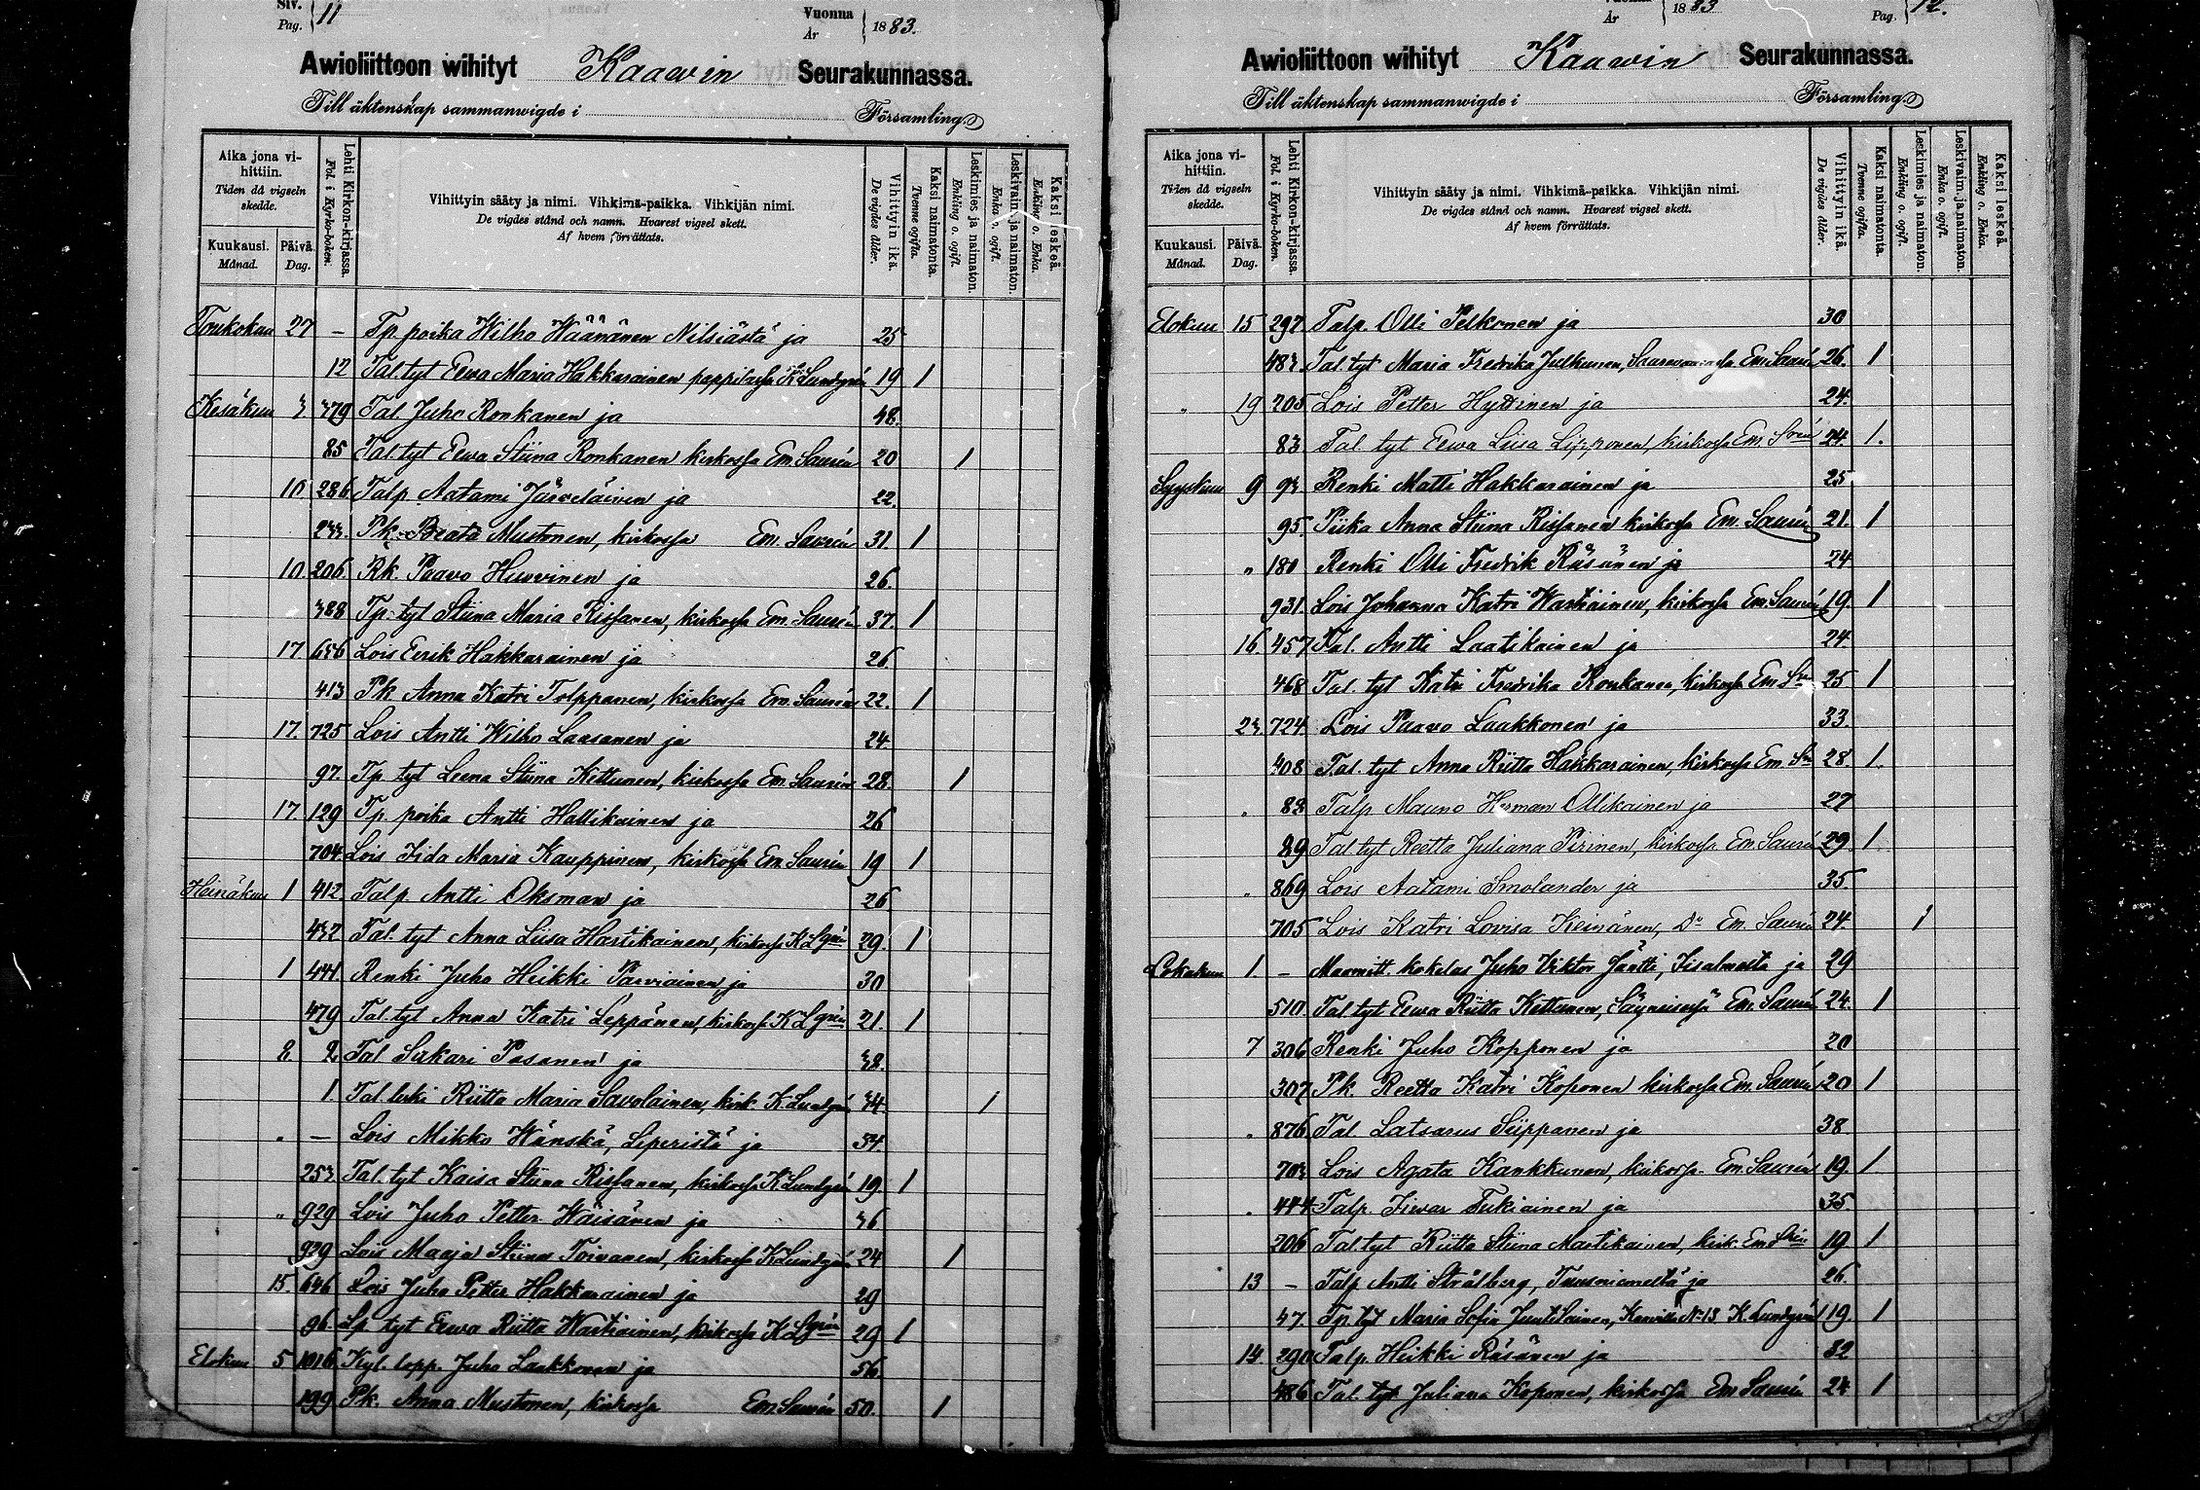 Siv.
Pag. 11
Vuonna
År 1883.
Awioliittoon wihityt Kaawin Seurakunnassa.
Till äktenskap sammanwigde i Församling.
Aika jona vihittiin.
Tiden då vigseln skedde.
Kuukausi.
Månad.
Päivä.
Dag.
Lehti Kirkon-kirjassa.
Fol. i Kyrko-boken.
Vihittyin sääty ja nimi. Vihkimä-paikka. Vihkijän nimi.
De vigdes stånd och namn. Hvarest vigsel skett.
Af hvem förrättats.
Vihittyin ikä.
De vigdes ålder.
Kaksi naimatonta.
Tvenne ogifta.
Leskimies ja naimaton.
Enkling o. ogift.
Leskivaim. ja naimaton.
Enka o. ogift.
Kaksi leskeä.
Enkling o. Enka.
Toukokuu 27 – Tp. poika Wilho Väänänen Nilsiästä ja 25
12 Tal. tyt Eewa Maria Hakkarainen pappilassa K Lundgrén 19 1
Kesäkuu 3 379 Tal Juho Ronkanen ja 48.
85 Tal. tyt Eewa Stiina Ronkanen kirkossa Em. Saurén 20 1
10 286 Talp. Aatami Järveläinen ja 22.
233 Pk. Beata Mustonen, kirkossa Em. Saurén 31. 1
10. 206. Rk. Paavo Huuvinen ja 26.
388 Tp. tyt Stiina Maria Rissanen, kirkossa Em. Saurén 37. 1
17 656 Lois Eerik Hakkarainen ja 26
413 Pk Anna Katri Tolppanen, kirkossa Em. Saurén 22. 1
17. 725 Lois Antti Wilho Laasanen ja 24
97. Tp. tyt Leena Stiina Kettunen, kirkossa Em. Saurén 28. 1
17. 129 Tp. poika Antti Hallikainen ja 26
704 Lois Iida Maria Kauppinen, kirkossa Em. Saurén 19 1
Heinäkuu 1 412. Talp. Antti Oksman ja 26
432 Tal. tyt Anna Liisa Hartikainen, kirkossa K Lgrén 29. 1
1 441. Renki Juho Heikki Parviainen ja 30
479 Tal. tyt Anna Katri Leppänen, kirkossa K Lgrén 21. 1
8 2 Tal Sakari Pasanen ja 38.
1 Tal. leski Riitta Maria Savolainen, kirk. K Lundgrén 34. 1
" – Lois Mikko Hänskä, Leperistä ja 34.
253 Tal. tyt Kaisa Stiina Rissanen, kirkossa K Lundgrén 19. 1
" 929 Lois Juho Petter Wäisänen ja 36
929 Lois Maaja Stiina Toivanen, kirkossa K Lundgrén 24 1
15. 646 Lois Juho Petter Hakkarainen ja 29
96. Lp. tyt Eewa Riitta Wartiainen, kirkossa K Lgrén 29 1
Elokuu 5 1016 Kyl. lopp. Juho Laakkonen ja 56.
199 Pk. Anna Mustonen, kirkossa Em Saurén 50. 1
Vuonna
År 1883
Pag. 12.
Awioliittoon wihityt Kaawin Seurakunnassa.
Till äktenskap sammanwigde i Församling.
Aika jona vihittiin.
Tiden då vigseln skedde.
Kuukausi.
Månad.
Päivä.
Dag.
Lehti Kirkon-kirjassa.
Fol. i Kyrko-boken.
Vihittyin sääty ja nimi. Vihkimä-paikka. Vihkijän nimi.
De vigdes stånd och namn. Hvarest vigsel skett.
Af hvem förrättats.
Vihittyin ikä.
De vigdes ålder.
Kaksi naimatonta.
Tvenne ogifta.
Leskimies ja naimaton.
Enkling o. ogift.
Leskivaim. ja naimaton.
Enka o. ogift.
Kaksi leskeä.
Enkling o. Enka.
Elokuu 15 297 Talp. Olli Pelkonen ja 30
483 Tal. tyt Maria Fredrika Julkunen, Em. Saurén 26. 1
" 19 205 Lois Petter Hyttinen ja 24.
83 Tal. tyt Eewa Liisa Lipponen, kirkossa Em. Srén 24. 1.
Syyskuu 9 93 Renki Matti Hakkarainen ja 25
95. Piika Anna Stiina Rissanen kirkossa Em. Saurén 21. 1
" 180 Renki Olli Fredrik Räsänen ja 24
931. Lois Johanna Katri Wartiainen, kirkossa Em. Saurén 19. 1
16. 457 Tal. Antti Laatikainen ja 24.
468 Tal. tyt Katri Fredrika Ronkanen, kirkossa Em Srén 25 1
23 724. Lois Paavo Laakkonen ja 33.
408 Tal. tyt Anna Riitta Hakkarainen, kirkossa Em. Srén 28. 1.
" 88 Talp Mauno Herman Ollikainen ja 27
89 Tal tyt Reetta Juliana Pirinen, kirkossa Em. Saurén 29. 1.
" 869 Lois Aatami Smolander ja 35.
705 Lois Katri Lovisa Keinänen, Do Em. Saurén 24. 1
Lokakuu 1 – Maamitt. kokelas Juho Viktor Jäntti, Iisalmesta ja 29
510 Tal. tyt Eewa Riitta Kettunen, Säyneisessä Em. Saurén 24. 1
7 306 Renki Juho Kopponen ja 20
307 Pk. Reetta Katri Koponen kirkossa Em. Saurén 20 1
" 876 Tal Latsarus Siippanen ja 38
703 Lois Agata Kankkunen, kirkossa Em. Saurén 19. 1
" 444 Talp. Iiwar Tukiainen ja 35.
206 Tal tyt Riitta Stiina Martikainen, kirk. Em Srén 19 1
13 – Talp. Antti Strålberg, Tuusniemeltä ja 26.
47. Tp. tyt Maria Sofia Juntilainen, Kaavilla No 13 K. Lundgrén 19. 1
14 290 Talp. Heikki Räsänen ja 32
486 Tal. tyt Juliana Koponen, kirkossa Em Saurén 24 1